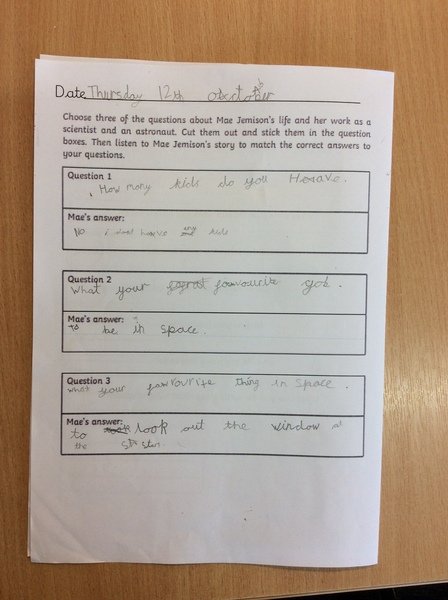 Date Thursday 12th obectober
Choose three of the questions about Mae Jemison's life and her work as a
scientist and an astronaut. Cut them out and stick them in the question
boxes. Then listen to Mae Jemison's story to match the correct answers to
your questions.
Question 1
How many kids do you Heave.
Mae's answer:
No i dont have any kids
Question 2
What your favourite gob.
Mae's answer:
to be in space.
Question 3
what your favrourite thing in space.
Mae's answer:
to look out the window at
the star stars.